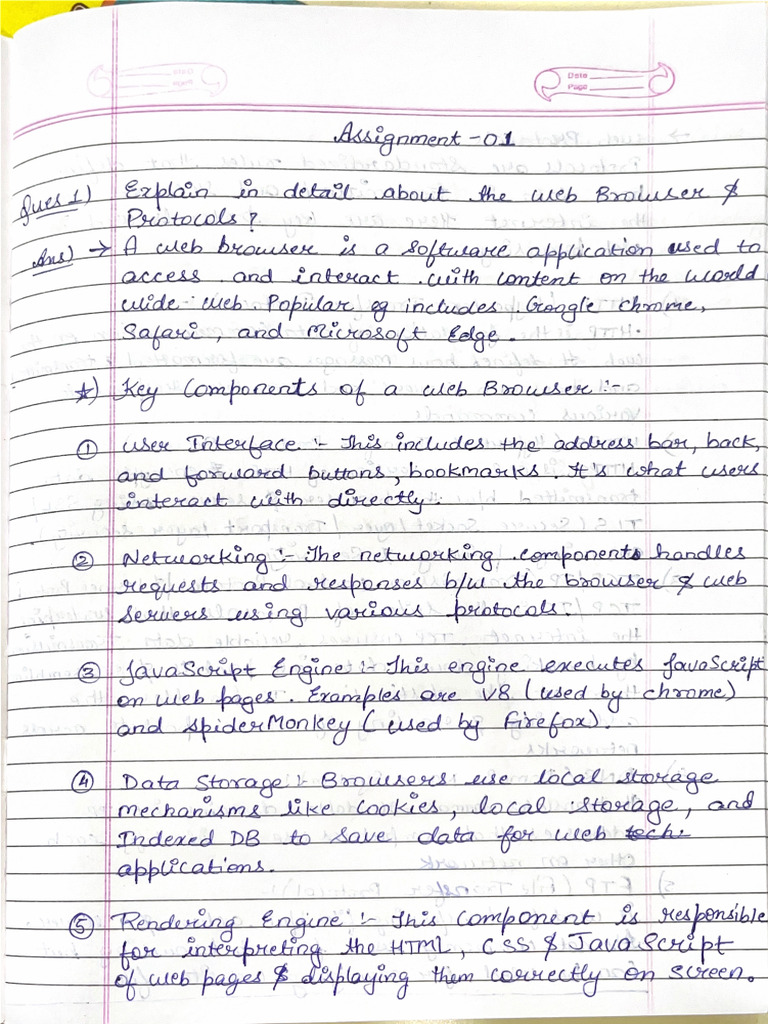 Date
Page
Assignment - 01
Ques 1) Explain in detail about the web Browser &
Protocols?
Ans) → A web browser is a software application used to
access and interact with content on the world
wide web. Popular eg includes Google chrome,
Safari, and Microsoft Edge.
☆) Key Components of a web Browser :-
① user Interface :- This includes the address bar, back,
and forward buttons, bookmarks. It's what users
interact with directly.
② Networking :- The networking components handles
requests and responses b/w the browser & web
servers using various protocols.
③ JavaScript Engine :- This engine executes JavaScript
on web pages. Examples are V8 (used by chrome)
and SpiderMonkey (used by Firefox).
④ Data Storage :- Browsers use local storage
mechanisms like cookies, local storage, and
Indexed DB to save data for web tech.
applications.
⑤ Rendering Engine :- This component is responsible
for interpreting the HTML, CSS & JavaScript
of web pages & displaying them correctly on screen.